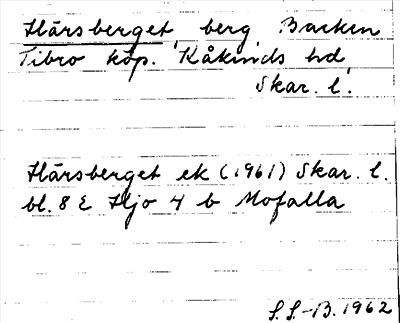 Härsberget, berg Backen
Tibro köp. Kåkinds hd
Skar. l.
Härsberget ek (1961) Skar. l.
bl. 8 E Hjo 4 b Mofalla
S.S-B. 1962